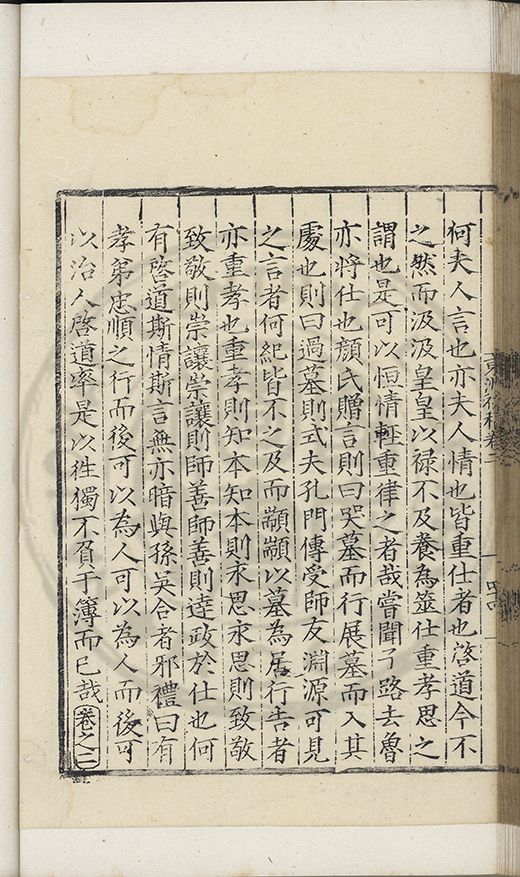 何夫人言也亦夫人情也皆重仕者也啓道今不
之然而汲汲皇皇以禄不及養為筮仕重孝思之
謂也是可以恒情輕重律之者哉嘗聞子路去魯
亦將仕也顔氏贈言則曰哭墓而行展墓而入其
處也則曰過墓則式夫孔門傳受師友淵源可見
之言者何紀皆不之及而顓顓以墓為居行告者
亦重孝也重孝則知本知本則永思永思則致敬
致敬則崇讓崇讓則師善師善則達政於仕也何
有啓道斯情斯言無亦暗與孫吳合者邪禮曰有
孝弟忠順之行而後可以為人可以為人而後可
以治人啓道率是以徃獨不負于簿而已哉
卷之二
卷二
四